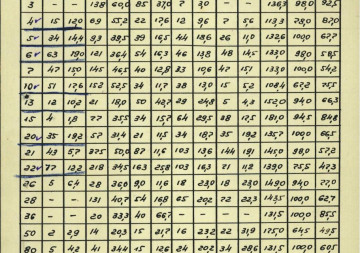 3 - - 138 60,0 85 37,0 7 3,0 - - 136,3 98,0 92,5
4v 15 12,0 69 55,2 22 17,6 12 9,6 7 5,6 113,3 79,0 87,0
5v 34 14,4 93 39,5 39 16,5 44 18,6 26 11,0 132,6 100,0 67,7
6v 63 19,0 121 36,4 54 16,3 46 13,8 48 14,5 133,0 98,0 58,5
7 47 15,0 145 46,5 40 12,8 33 10,6 47 15,1 133,0 100,0 54,2
10v 51 17,6 152 52,5 34 11,7 38 13,0 15 5,2 108,4 67,2 75,5
13 12 10,2 21 18,0 50 42,7 29 24,8 5 4,3 152,0 94,0 66,3
15 4 1,8 77 35,5 34 15,7 64 29,5 38 17,5 181,0 94,5 84,8
20v 35 19,2 57 31,4 21 11,5 34 18,7 35 19,2 135,7 100,0 66,5
21 43 5,7 375 50,0 87 11,6 103 13,6 144 19,1 145,0 98,0 57,2
22v 77 12,2 218 34,5 163 25,8 103 16,3 71 11,2 139,0 75,5 47,3
26 5 6,4 28 36,0 9,0 11,6 18 23,0 18 23,0 149,0 94,0 77,0
28 - - 131 40,7 54 16,8 65 20,2 72 22,3 143,5 100,0 62,7
36 - - 20 33,3 40 66,7 - - - - 131,5 100,0 85,5
50 2 2,9 14 20,3 15 21,7 16 23,2 22 31,9 175,0 64,5 49,5
80 5 4,2 41 34,4 15 12,6 24 20,2 34 28,6 131,5 100,0 60,5